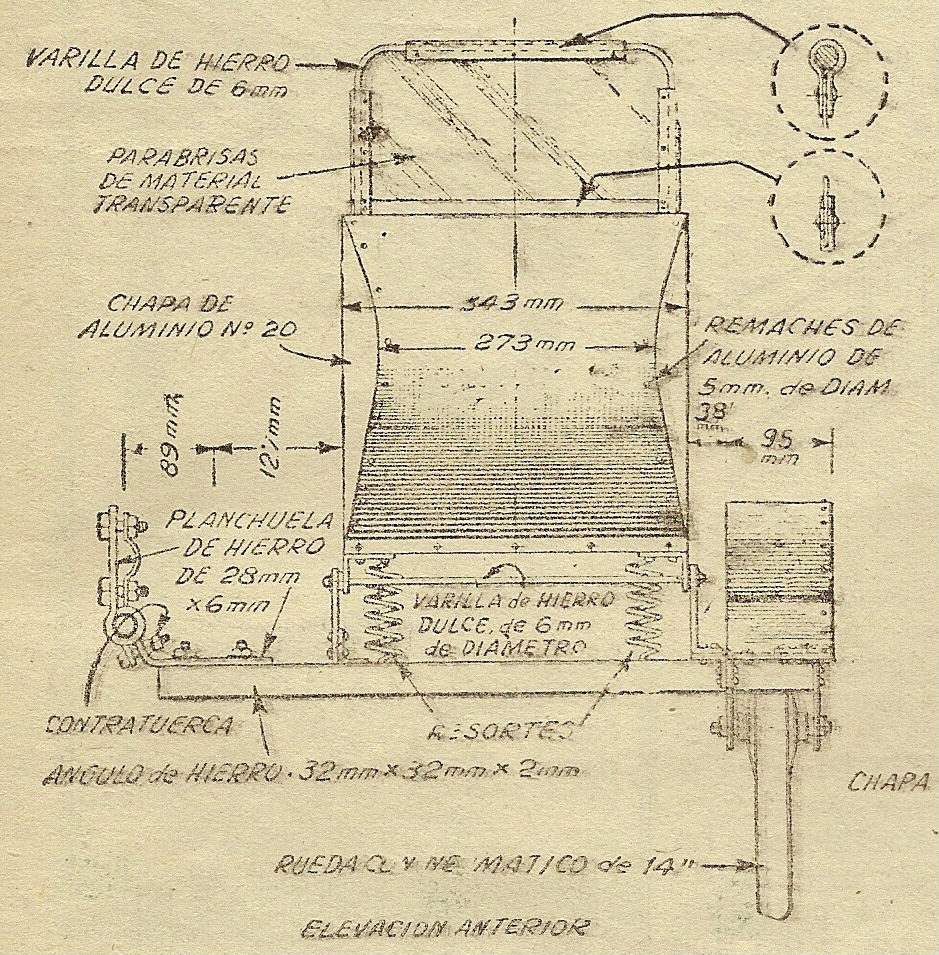 VARILLA DE HIERRO
DULCE DE 6mm
PARABRISAS
DE MATERIAL
TRANSPARENTE
CHAPA DE
ALUMINIO Nº 20
343mm
273mm
REMACHES DE
ALUMINIO DE
5mm. de DIAM
38
mm
95
mm
89mm
mm
PLANCHUELA
DE HIERRO
DE 28mm
x6mm
VARILLA de HIERRO
DULCE, de 6mm
de DIAMETRO
CONTRATUERCA
RESORTES
ANGULO de HIERRO. 32mm x 32mm x 2mm
CHAPA
RUEDA de 14"
ELEVACION ANTERIOR